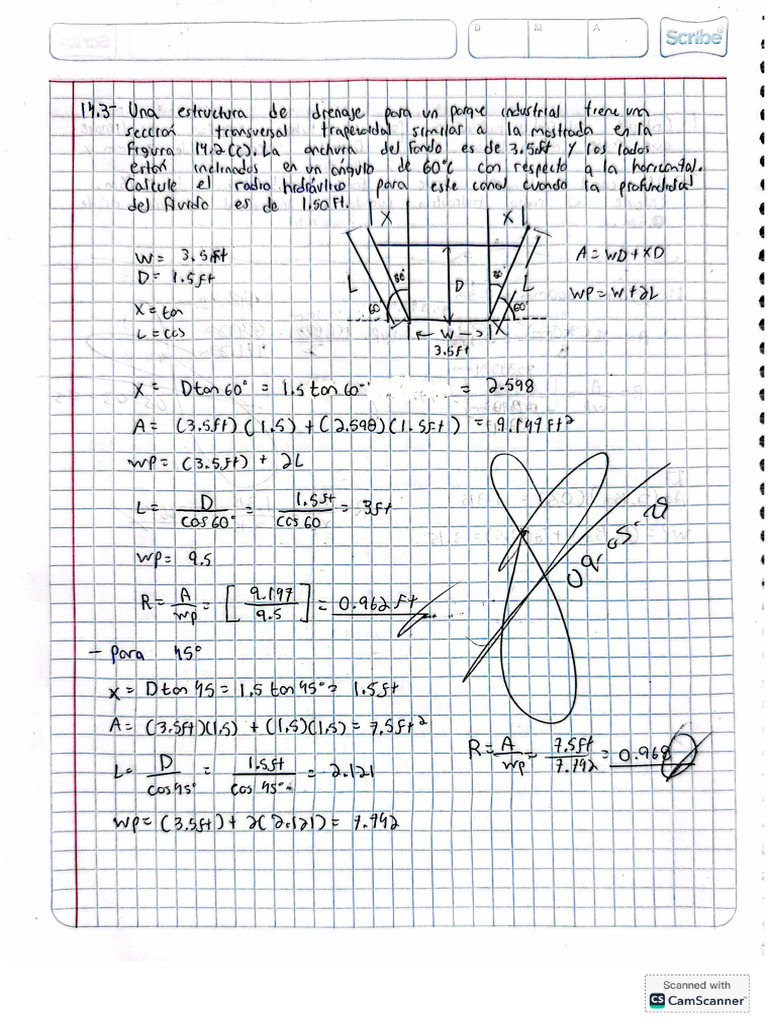 Scribe
D M A
14.3- Una estructura de drenaje para un parque industrial tiene una
sección transversal trapezoidal similar a la mostrada en la
Figura 14.2(c). La anchura del fondo es de 3.5ft y los lados
están inclinados en un ángulo de 60°C con respecto a la horizontal.
Calcule el radio hidráulico para este canal cuando la profundidad
del fluido es de 1.50 Ft.
W= 3.5ft
D= 1.5ft
X= tan
L= cos
X X
L D L
60° 60°
← W →
X
3.5ft
A= WD+XD
WP= W+2L
X= Dtan 60° = 1.5 tan 60° = 2.598
A= (3.5ft)(1.5) + (2.598)(1.5ft) = 9.147ft²
WP= (3.5ft) + 2L
L= D/cos60° = 1.5ft/cos 60 = 3ft
WP= 9.5
R= A/WP = [9.147/9.5] = 0.962 ft
09-05-
- Para 45°
X= Dtan 45 = 1.5 tan 45° = 1.5ft
A= (3.5ft)(1.5) + (1.5)(1.5) = 7.5ft²
L= D/cos45° = 1.5ft/cos 45° = 2.121
WP= (3.5ft) + 2(2.121) = 7.742
R= A/WP = 7.5ft/7.742 = 0.968
Scanned with
CS CamScanner